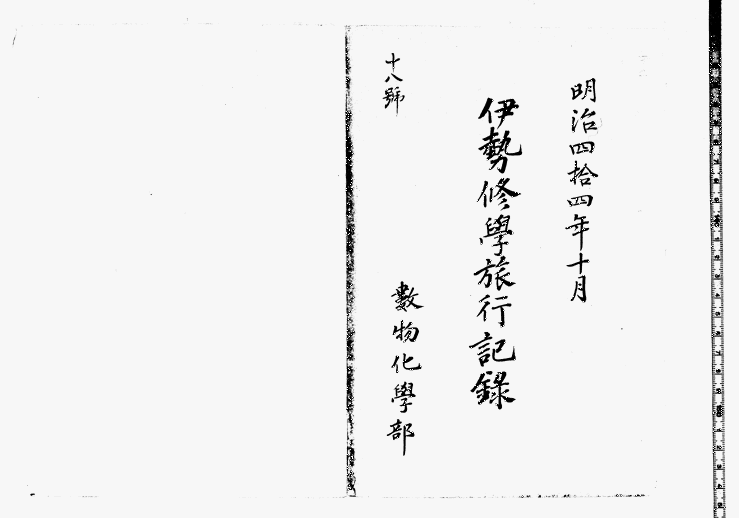 明治四拾四年十月
伊勢修學旅行記錄
十八號
數物化學部